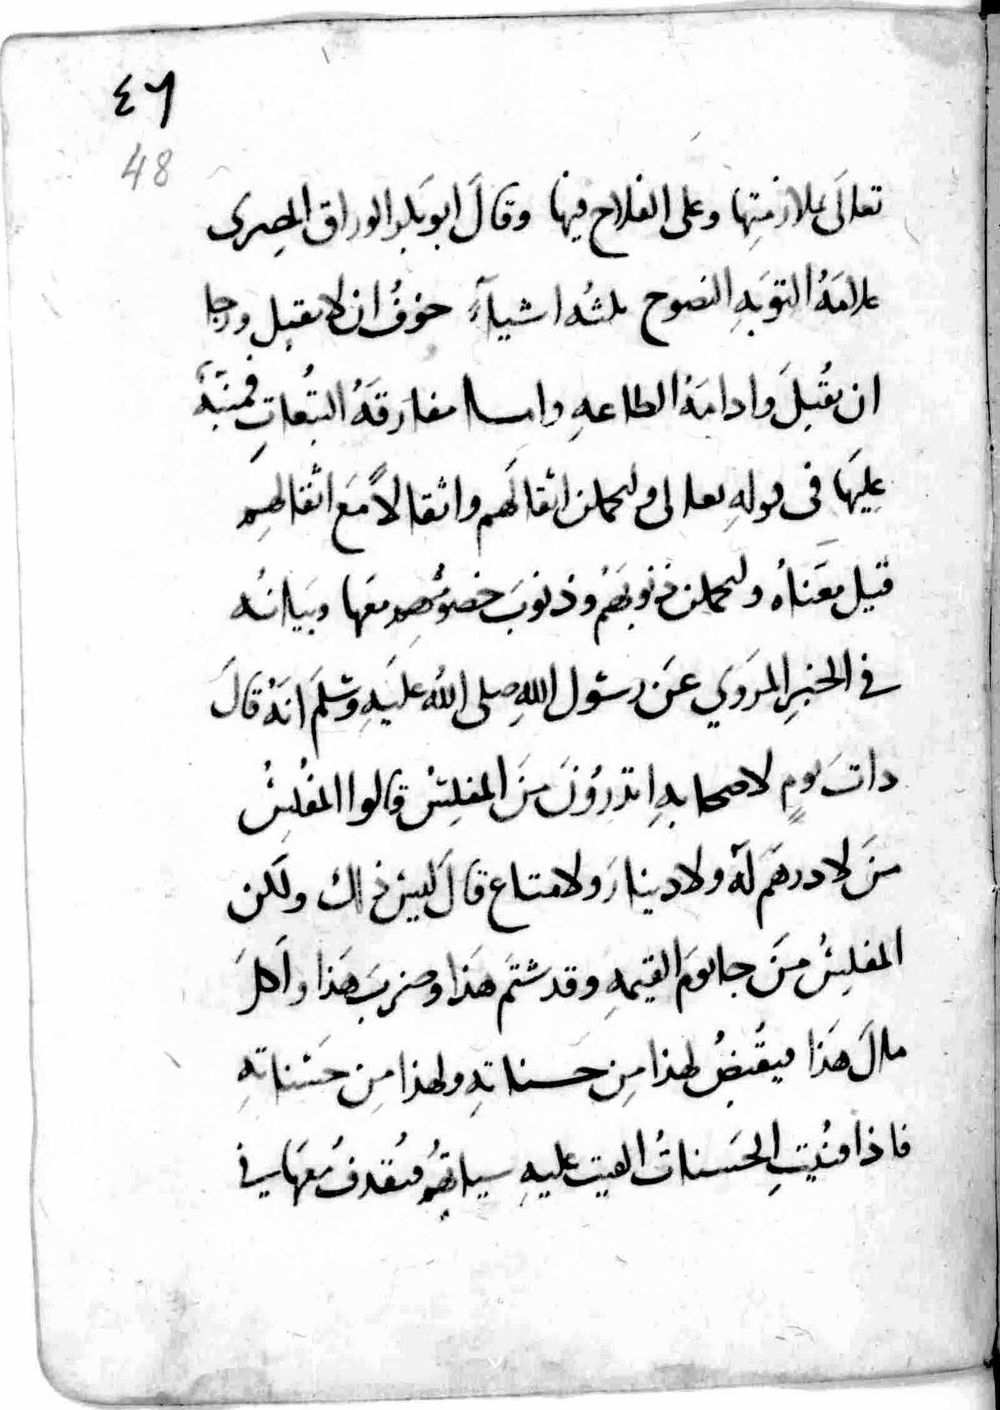 ٤٦
48
تعالى علا زمتها وعلى الفلاح فيها وقالَ ابو بكر الوراق المصرى
علامَةُ التوبَهِ النصوح ثلثُه اشيآءَ خوفُ ان لا يقبل ورجا
ان يقُبلَ وادامَهُ الطاعهِ واما مفارقَهُ التبُعاتِ فمنبَّهٌ
عليَها فى قولهِ تعالى وليحملن اثقالَهم واثقالاً مَع اثقالهِم
قيل معَناهُ وليحملن ذنوبَهُم وذنوبَ خصوُمهم معَها وبَيانُه
في الخبرِ المَروَي عَن رسُول اللهِ صلى اللهُ عليَهِ وسَلمَ انهَُ قالَ
داتَ يومٍ لاصحابهِ اتدرُونَ مَنَ المفلسُ قالوا المفُلسُ
مَن لا درهَم لهَ ولا دينارَ ولا متاع قالَ ليسَ ذاك ولكن
المفلِسُ مَن جا يومَ القيمهِ وقد شتَم هَذا وضربَ هَذا واكلَ
مالَ هَذا فيقُبَضُ لهذا مِن حسناتهِ ولهذا مِن حَسناتهِ
فاذا فنيَتِ الحَسناتُ القيت عليهِ سياتهُم فيُقدفُ معَها في